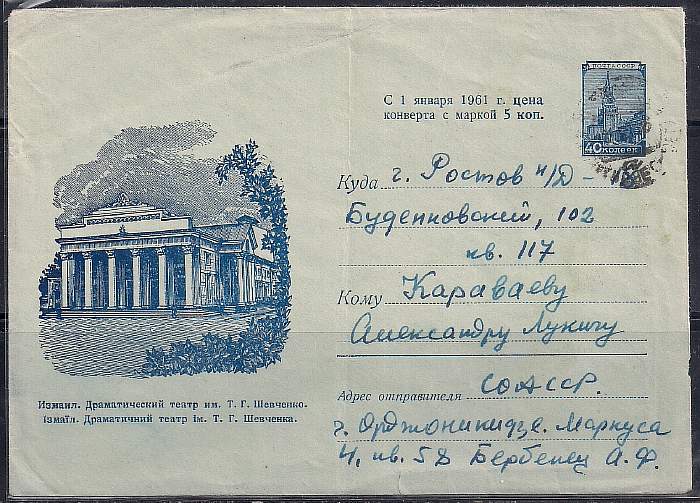 С 1 января 1961 г. цена
конверта с маркой 5 коп.
ПОЧТА СССР
40 КОПЕЕК
Куда г. Ростов н/Д -
Буденновский, 102
кв. 117
Кому Караваеву
Александру Лукичу
Адрес отправителя СОАССР.
г. Орджоникидзе. Маркуса
4, кв. 58 Бербенец А. Ф.
Измаил. Драматический театр им. Т. Г. Шевченко.
Ізмаїл. Драматичний театр ім. Т. Г. Шевченка.